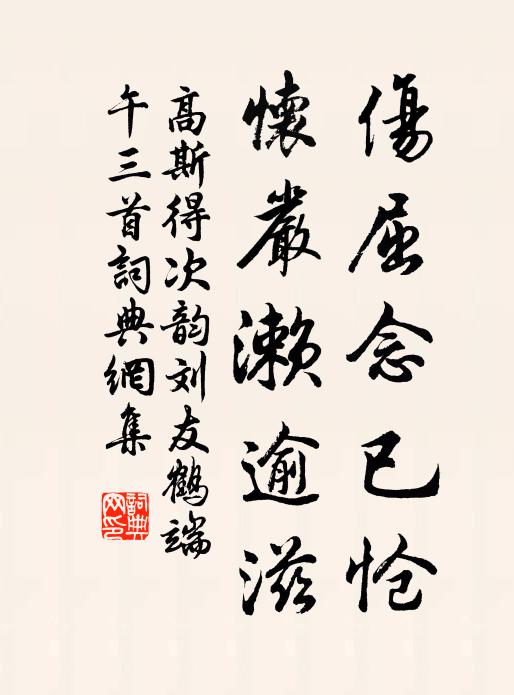 傷屈念已怆
懷嚴瀨逾滋
高斯得次韵刘友鶴端
午三首詞典網集
詞典
网印